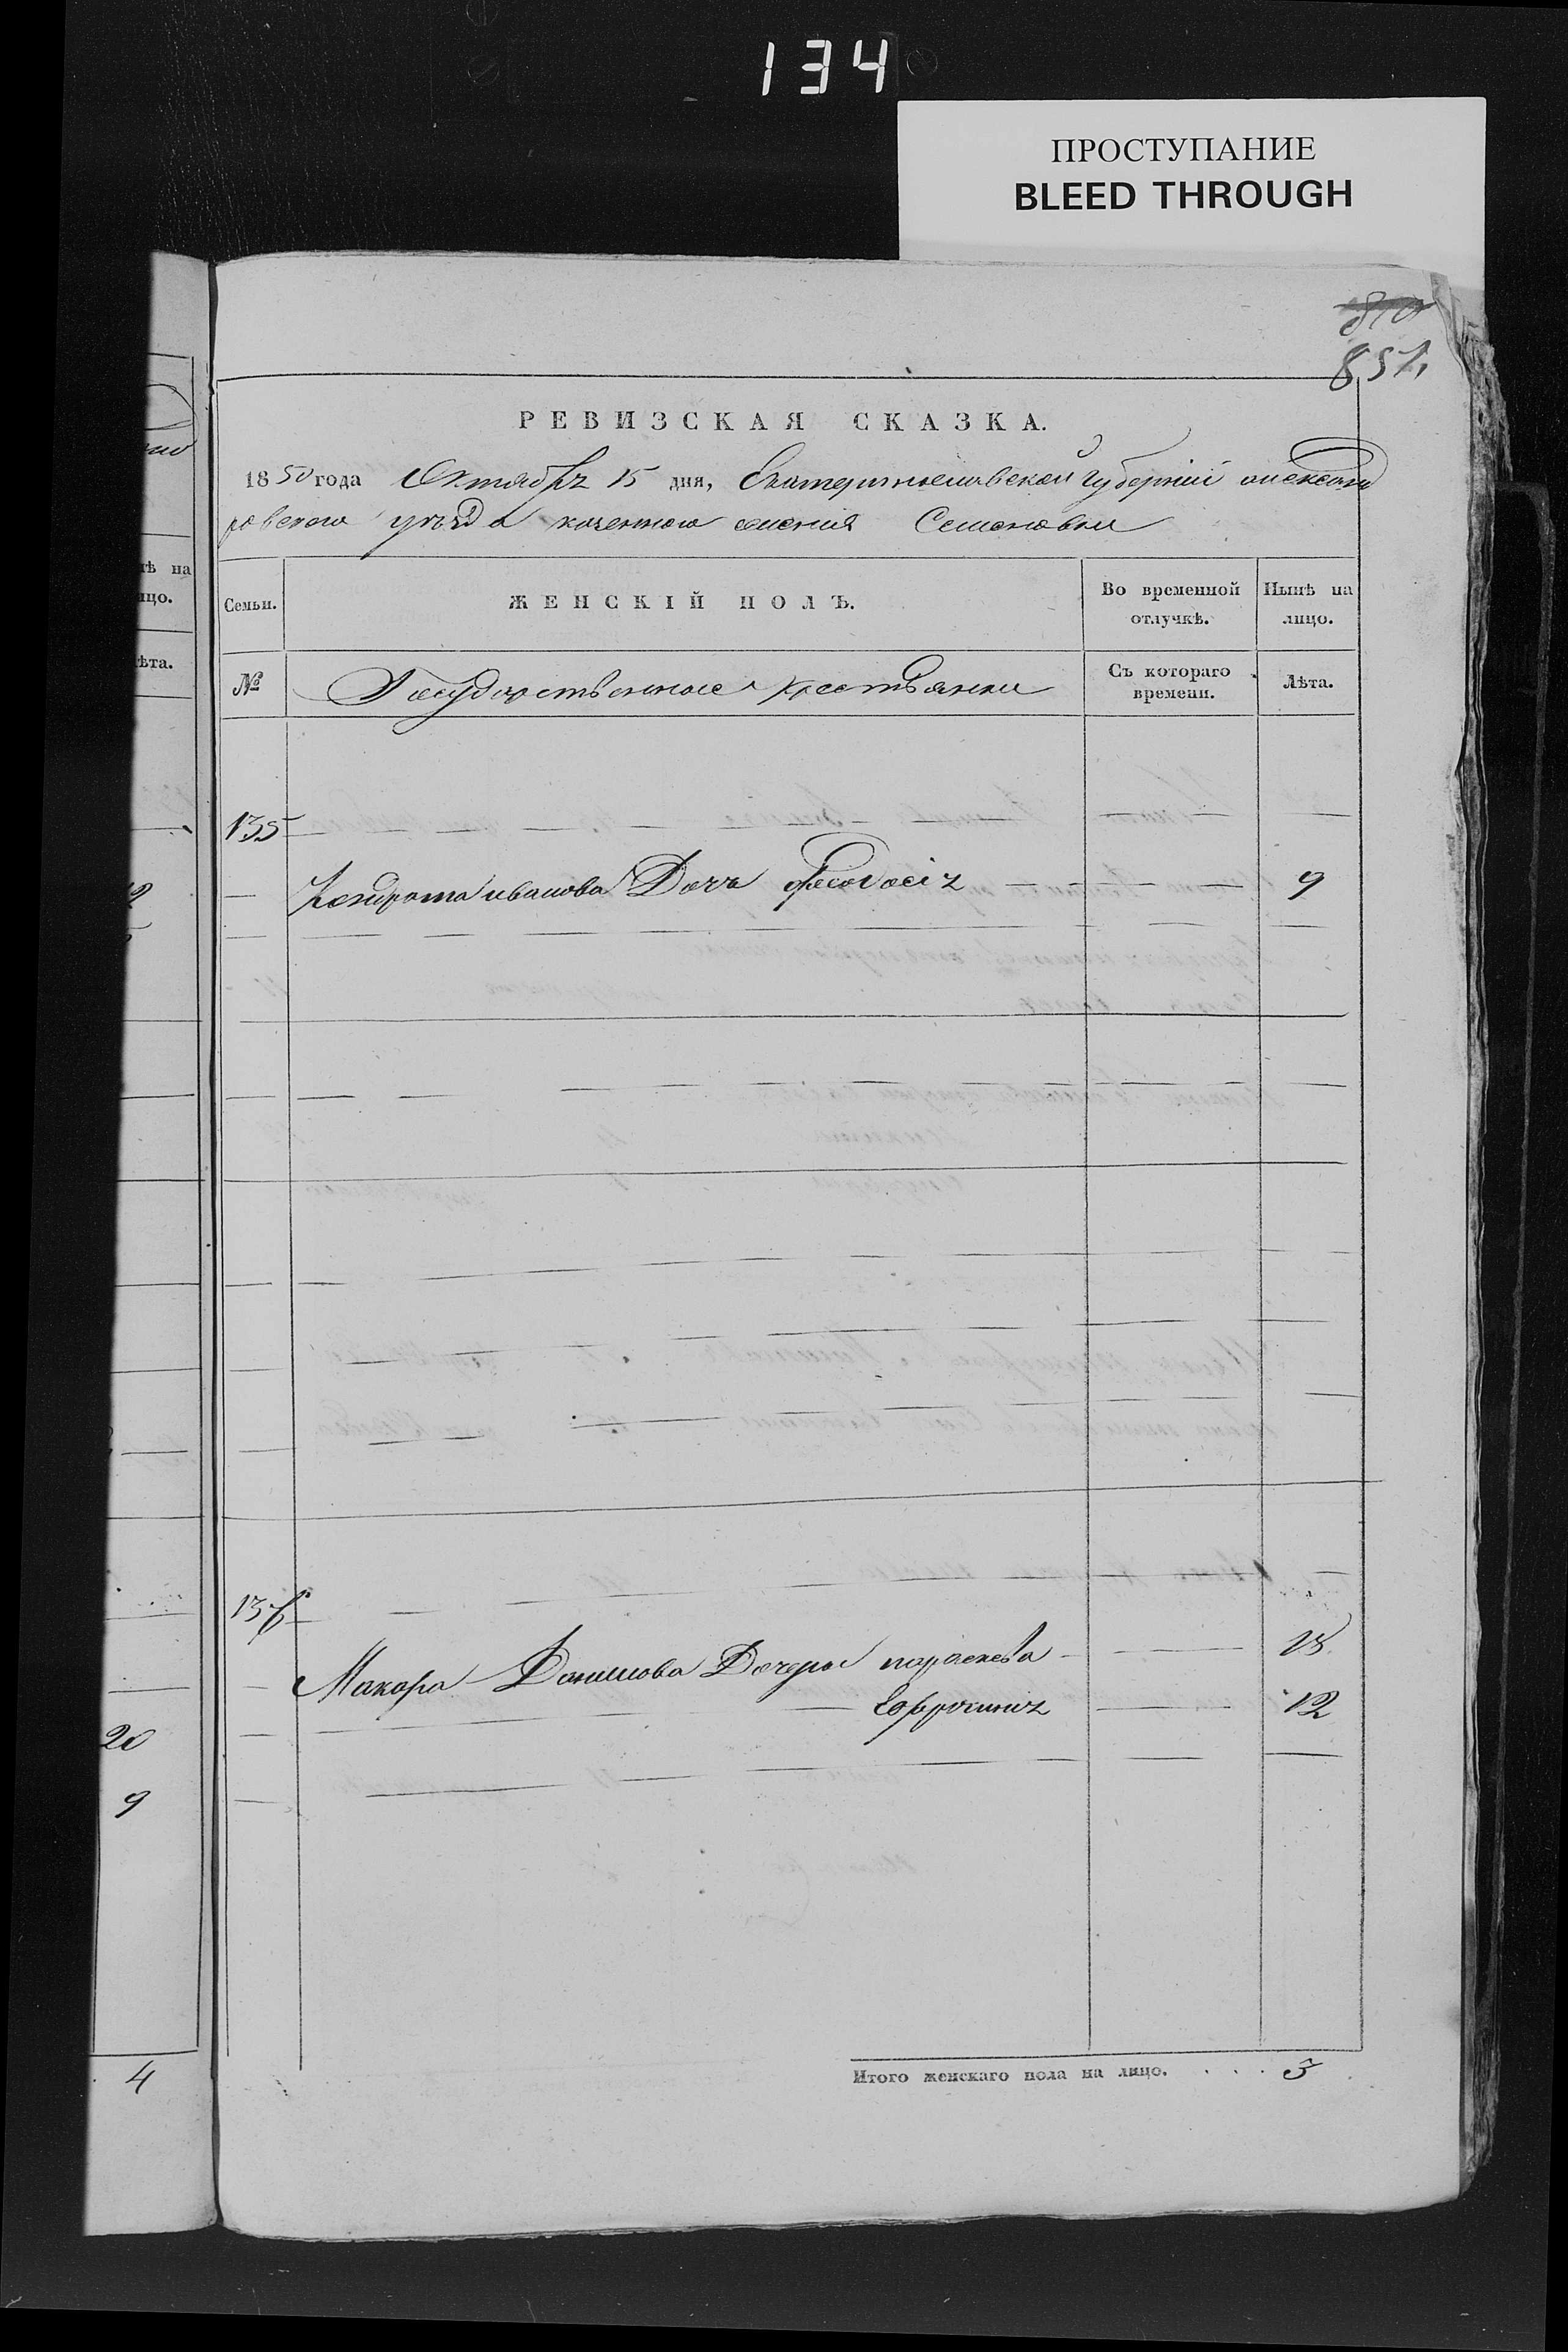 134
ПРОСТУПАНИЕ
BLEED THROUGH
851.
РЕВИЗСКАЯ СКАЗКА.
1850 года Октября 15 дня, Екатеринославской губернии александ
ровского уезда казенного селения Семеновки
Семьи. ЖЕНСКІЙ ПОЛЪ. Во временной отлучкѣ. Нынѣ на лицо.
№ Государственные крестьянки Съ котораго времени. Лѣта.
135
Кондрата иванова Дочь феодосія 9
136
Макара Данилова Дочери параскева 18
Ефросинія 12
Итого женскаго пола на лицо. . . . 3
ѣ на
цо.
ѣта.
20
9
4